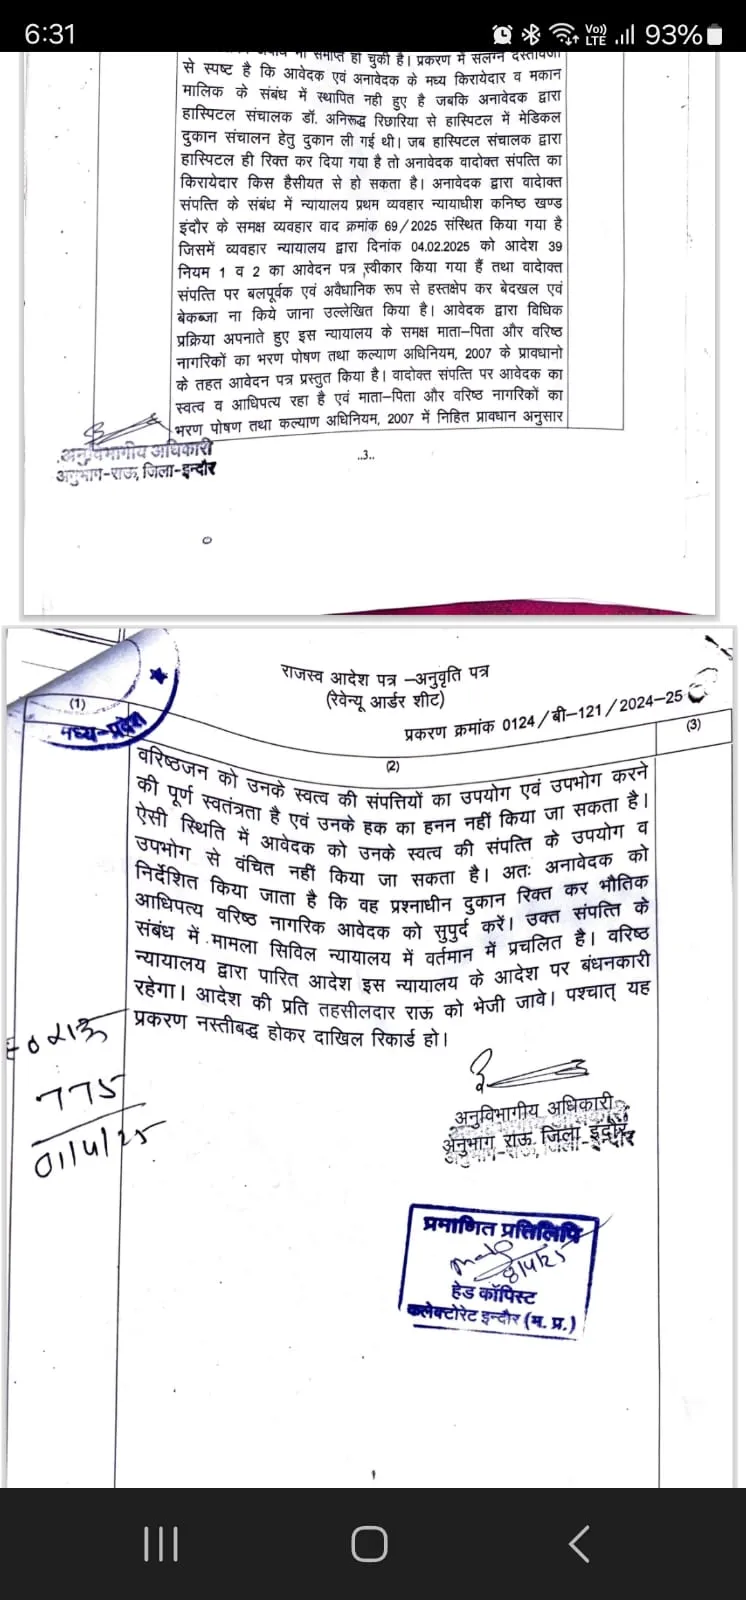 6:31
Vo))
LTE
93%
समाप्त हो चुकी है। प्रकरण में संलग्न दस्तावेजो
से स्पष्ट है कि आवेदक एवं अनावेदक के मध्य किरायेदार व मकान
मालिक के संबंध में स्थापित नही हुए है जबकि अनावेदक द्वारा
हास्पिटल संचालक डॉ. अनिरूद्ध रिछारिया से हास्पिटल में मेडिकल
दुकान संचालन हेतु दुकान ली गई थी। जब हास्पिटल संचालक द्वारा
हास्पिटल ही रिक्त कर दिया गया है तो अनावेदक वादोक्त संपत्ति का
किरायेदार किस हैसीयत से हो सकता है। अनावेदक द्वारा वादोक्त
संपत्ति के संबंध में न्यायालय प्रथम व्यवहार न्यायाधीश कनिष्ठ खण्ड
इंदौर के समक्ष व्यवहार वाद क्रमांक 69/2025 संस्थित किया गया है
जिसमें व्यवहार न्यायालय द्वारा दिनांक 04.02.2025 को आदेश 39
नियम 1 व 2 का आवेदन पत्र स्वीकार किया गया हैं तथा वादोक्त
संपत्ति पर बलपूर्वक एवं अवैधानिक रूप से हस्तक्षेप कर बेदखल एवं
बेकब्जा ना किये जाना उल्लेखित किया है। आवेदक द्वारा विधिक
प्रक्रिया अपनाते हुए इस न्यायालय के समक्ष माता-पिता और वरिष्ठ
नागरिकों का भरण पोषण तथा कल्याण अधिनियम, 2007 के प्रावधानो
के तहत आवेदन पत्र प्रस्तुत किया है। वादोक्त संपत्ति पर आवेदक का
स्वत्व व आधिपत्य रहा है एवं माता-पिता और वरिष्ठ नागरिकों का
भरण पोषण तथा कल्याण अधिनियम, 2007 में निहित प्रावधान अनुसार
अनुविभागीय अधिकारी
अनुभाग-राऊ, जिला-इन्दौर
..3..
राजस्व आदेश पत्र –अनुवृति पत्र
(रेवेन्यू आर्डर शीट)
प्रकरण क्रमांक 0124/बी-121/2024-25
(1)
(2)
(3)
मध्य-प्रदेश
वरिष्ठजन को उनके स्वत्व की संपत्तियों का उपयोग एवं उपभोग करने
की पूर्ण स्वतंत्रता है एवं उनके हक का हनन नहीं किया जा सकता है।
ऐसी स्थिति में आवेदक को उनके स्वत्व की संपत्ति के उपयोग व
उपभोग से वंचित नहीं किया जा सकता है। अतः अनावेदक को
निर्देशित किया जाता है कि वह प्रश्नाधीन दुकान रिक्त कर भौतिक
आधिपत्य वरिष्ठ नागरिक आवेदक को सुपुर्द करें। उक्त संपत्ति के
संबंध में मामला सिविल न्यायालय में वर्तमान में प्रचलित है। वरिष्ठ
न्यायालय द्वारा पारित आदेश इस न्यायालय के आदेश पर बंधनकारी
रहेगा। आदेश की प्रति तहसीलदार राऊ को भेजी जावे। पश्चात् यह
प्रकरण नस्तीबद्ध होकर दाखिल रिकार्ड हो।
775
01/4/25
अनुविभागीय अधिकारी
अनुभाग राऊ, जिला इंदौर
प्रमाणित प्रतिलिपि
8/4/25
हेड कॉपिस्ट
कलेक्टोरेट इन्दौर (म. प्र.)